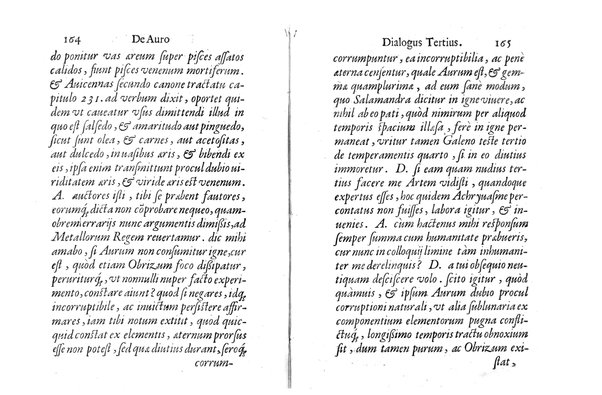 164 De Auro
do ponitur vas æreum super pisces assatos
calidos, fiunt pisces venenum mortiferum.
& Avicennas secundo canone tractatu ca-
pitulo 231. ad verbum dixit, oportet qui-
dem vt caueatur vsus dimittendi illud in
quo est salsedo, & amaritudo aut pinguedo,
sicut sunt olea, & carnes, aut acetositas,
aut dulcedo, in vasibus æris, & bibendi ex
eis, ipsa enim transmittunt procul dubio vi-
riditatem æris, & viride æris est venenum.
A. auctores isti, tibi se præbent fautores,
eorumq́, dicta non cōprobare nequeo, quam-
obrem ierrarijs nunc argumentis dimissis, ad
Metallorum Regem reuertamur. dic mihi
amabo, si Aurum non consumitur igne, cur
est, quòd etiam Obrizum foco dissipatur,
peruriturq́, vt nonnulli nuper facto experi-
mento, constare aiunt? quod si negares, idq́,
incorruptibile, ac inuictum persistere affir-
mares, iam tibi notum extitit, quod quic-
quid constat ex elementis, æternum prorsus
esse non potest, sed quæ diutius durant, seroq́,
corrum-
Dialogus Tertius. 165
corrumpuntur, ea incorruptibilia, ac penè
æterna censentur, quale Aurum est, & gem-
mæ quamplurimæ, ad eum sanè modum,
quo Salamandra dicitur in igne viuere, ac
nihil ab eo pati, quòd nimirum per aliquod
temporis spacium illæsa, ferè in igne per-
maneat, vritur tamen Galeno teste tertio
de temperamentis quarto, si in eo diutius
immoretur. D. si eam quam nudius ter-
tius facere me Artem vidisti, quandoque
expertus esses, hoc quidem Achryuasme per-
contatus non fuisses, labora igitur, & in-
uenies. A. cum hactenus mihi responsum
semper summa cum humanitate præbueris,
cur nunc in colloquij limine tàm inhumani-
ter me derelinquis? D. a tui obsequio neu-
tiquam desciscere volo. scito igitur, quòd
quàmuis, & ipsum Aurum dubio procul
corruptioni naturali, vt alia sublunaria ex
componentium elementorum pugna confli-
ctuq́, longissimo temporis tractu obnoxium
sit, dum tamen purum, ac Obrizum exi-
stat,